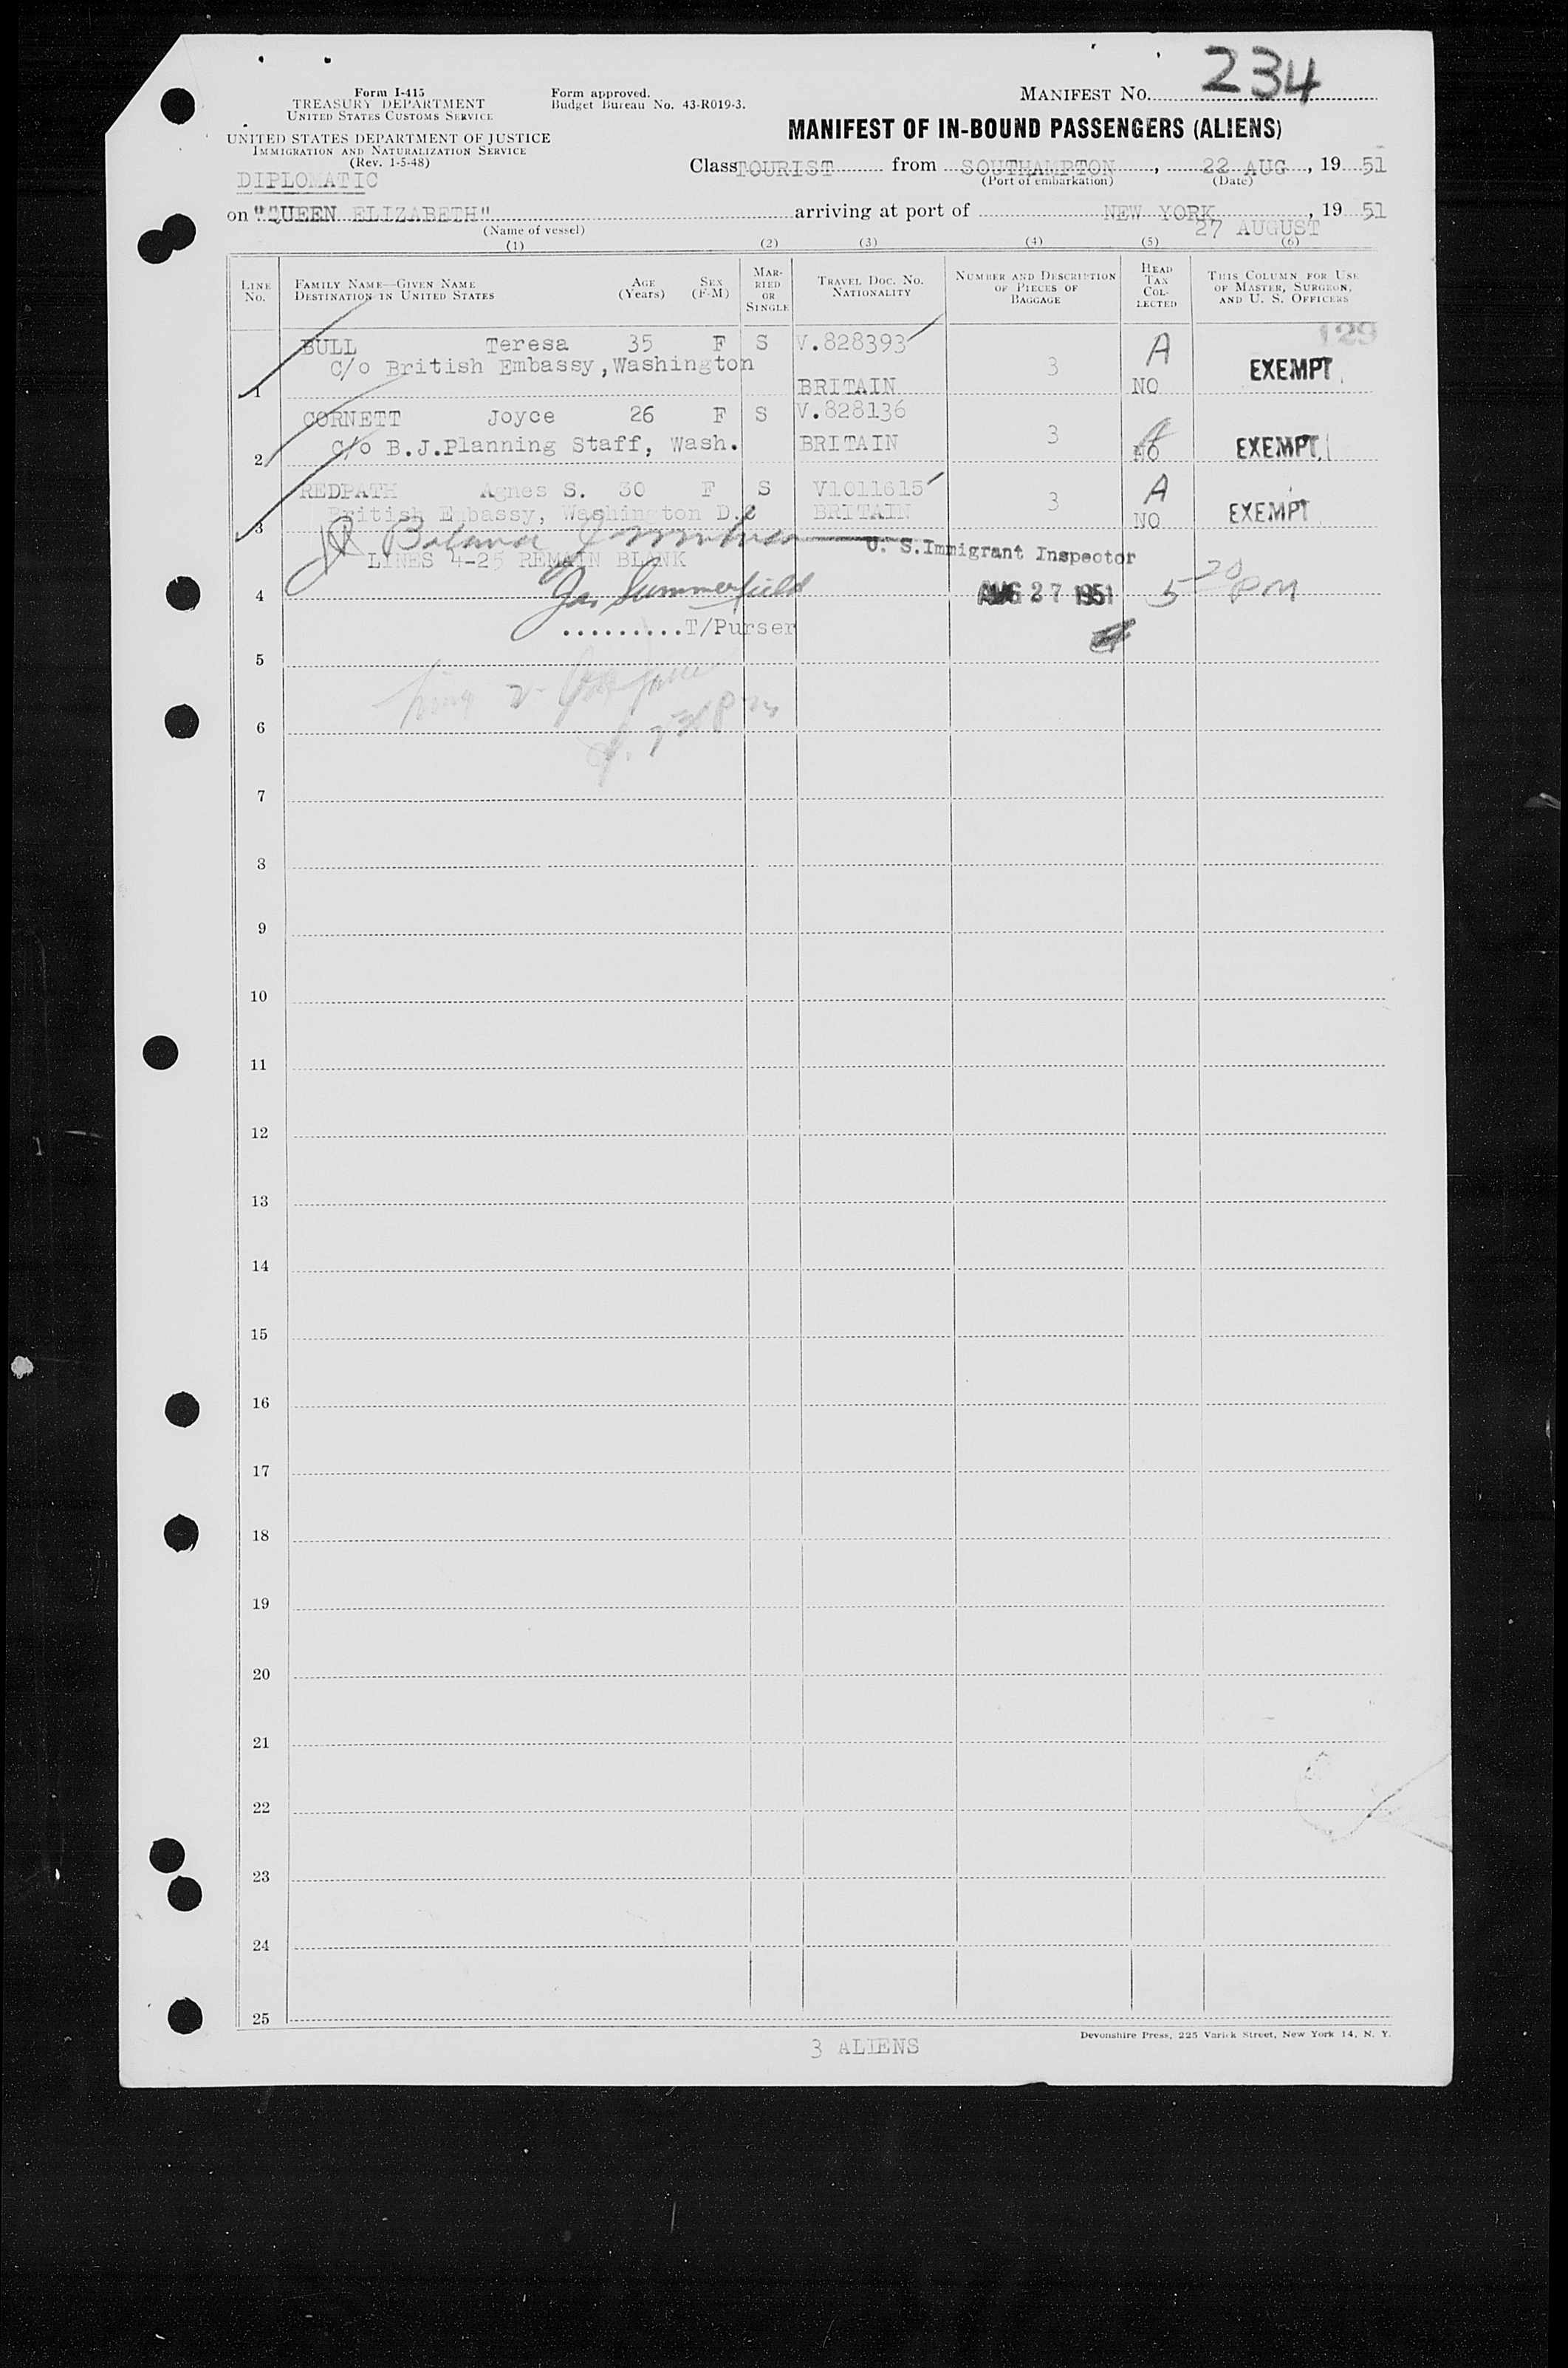 MANIFEST NO. 234
Form I-415
TREASURY DEPARTMENT
UNITED STATES CUSTOMS SERVICE
Form approved.
Budget Bureau No. 43-R019-3.
UNITED STATES DEPARTMENT OF JUSTICE
IMMIGRATION AND NATURALIZATION SERVICE
(Rev. 1-5-48)
MANIFEST OF IN-BOUND PASSENGERS (ALIENS)
DIPLOMATIC
Class TOURIST from SOUTHAMPTON, 22 AUG, 19 51
(Port of embarkation) (Date)
on "QUEEN ELIZABETH" arriving at port of NEW YORK, 19 51
(Name of vessel) 27 AUGUST
(1) (2) (3) (4) (5) (6)
LINE No.
FAMILY NAME—GIVEN NAME
DESTINATION IN UNITED STATES
AGE (Years)
SEX (F-M)
MAR-RIED OR SINGLE
TRAVEL DOC. NO. NATIONALITY
NUMBER AND DESCRIPTION OF PIECES OF BAGGAGE
HEAD TAX COL-LECTED
THIS COLUMN FOR USE OF MASTER, SURGEON, AND U. S. OFFICERS
129
BULL Teresa 35 F S V.828393 A
C/o British Embassy, Washington 3 EXEMPT
1 BRITAIN NO
CORNETT Joyce 26 F S V.828136
2 C/o B.J.Planning Staff, Wash. BRITAIN 3 NO EXEMPT
REDPATH Agnes S. 30 F S V1011615 A
3 British Embassy, Washington D.C BRITAIN 3 NO EXEMPT
U. S. Immigrant Inspector
LINES 4-25 REMAIN BLANK
4 Jas Summerfield AUG 27 1951 5 20 PM
.........T/Purser
5
6
7
8
9
10
11
12
13
14
15
16
17
18
19
20
21
22
23
24
25
Devonshire Press, 225 Varick Street, New York 14, N. Y.
3 ALIENS